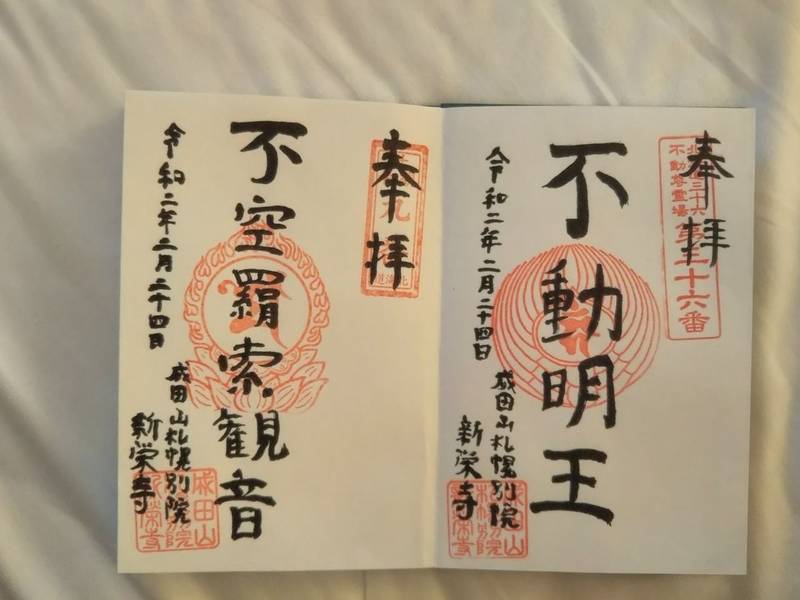 奉拝
不動明王
令和二年二月二十四日
成田山札幌別院
新栄寺
三十六
不動尊霊場
第三十六番
成田山
札幌別院
新栄寺
奉拝
不空羂索観音
令和二年二月二十四日
成田山札幌別院
新栄寺
成田山